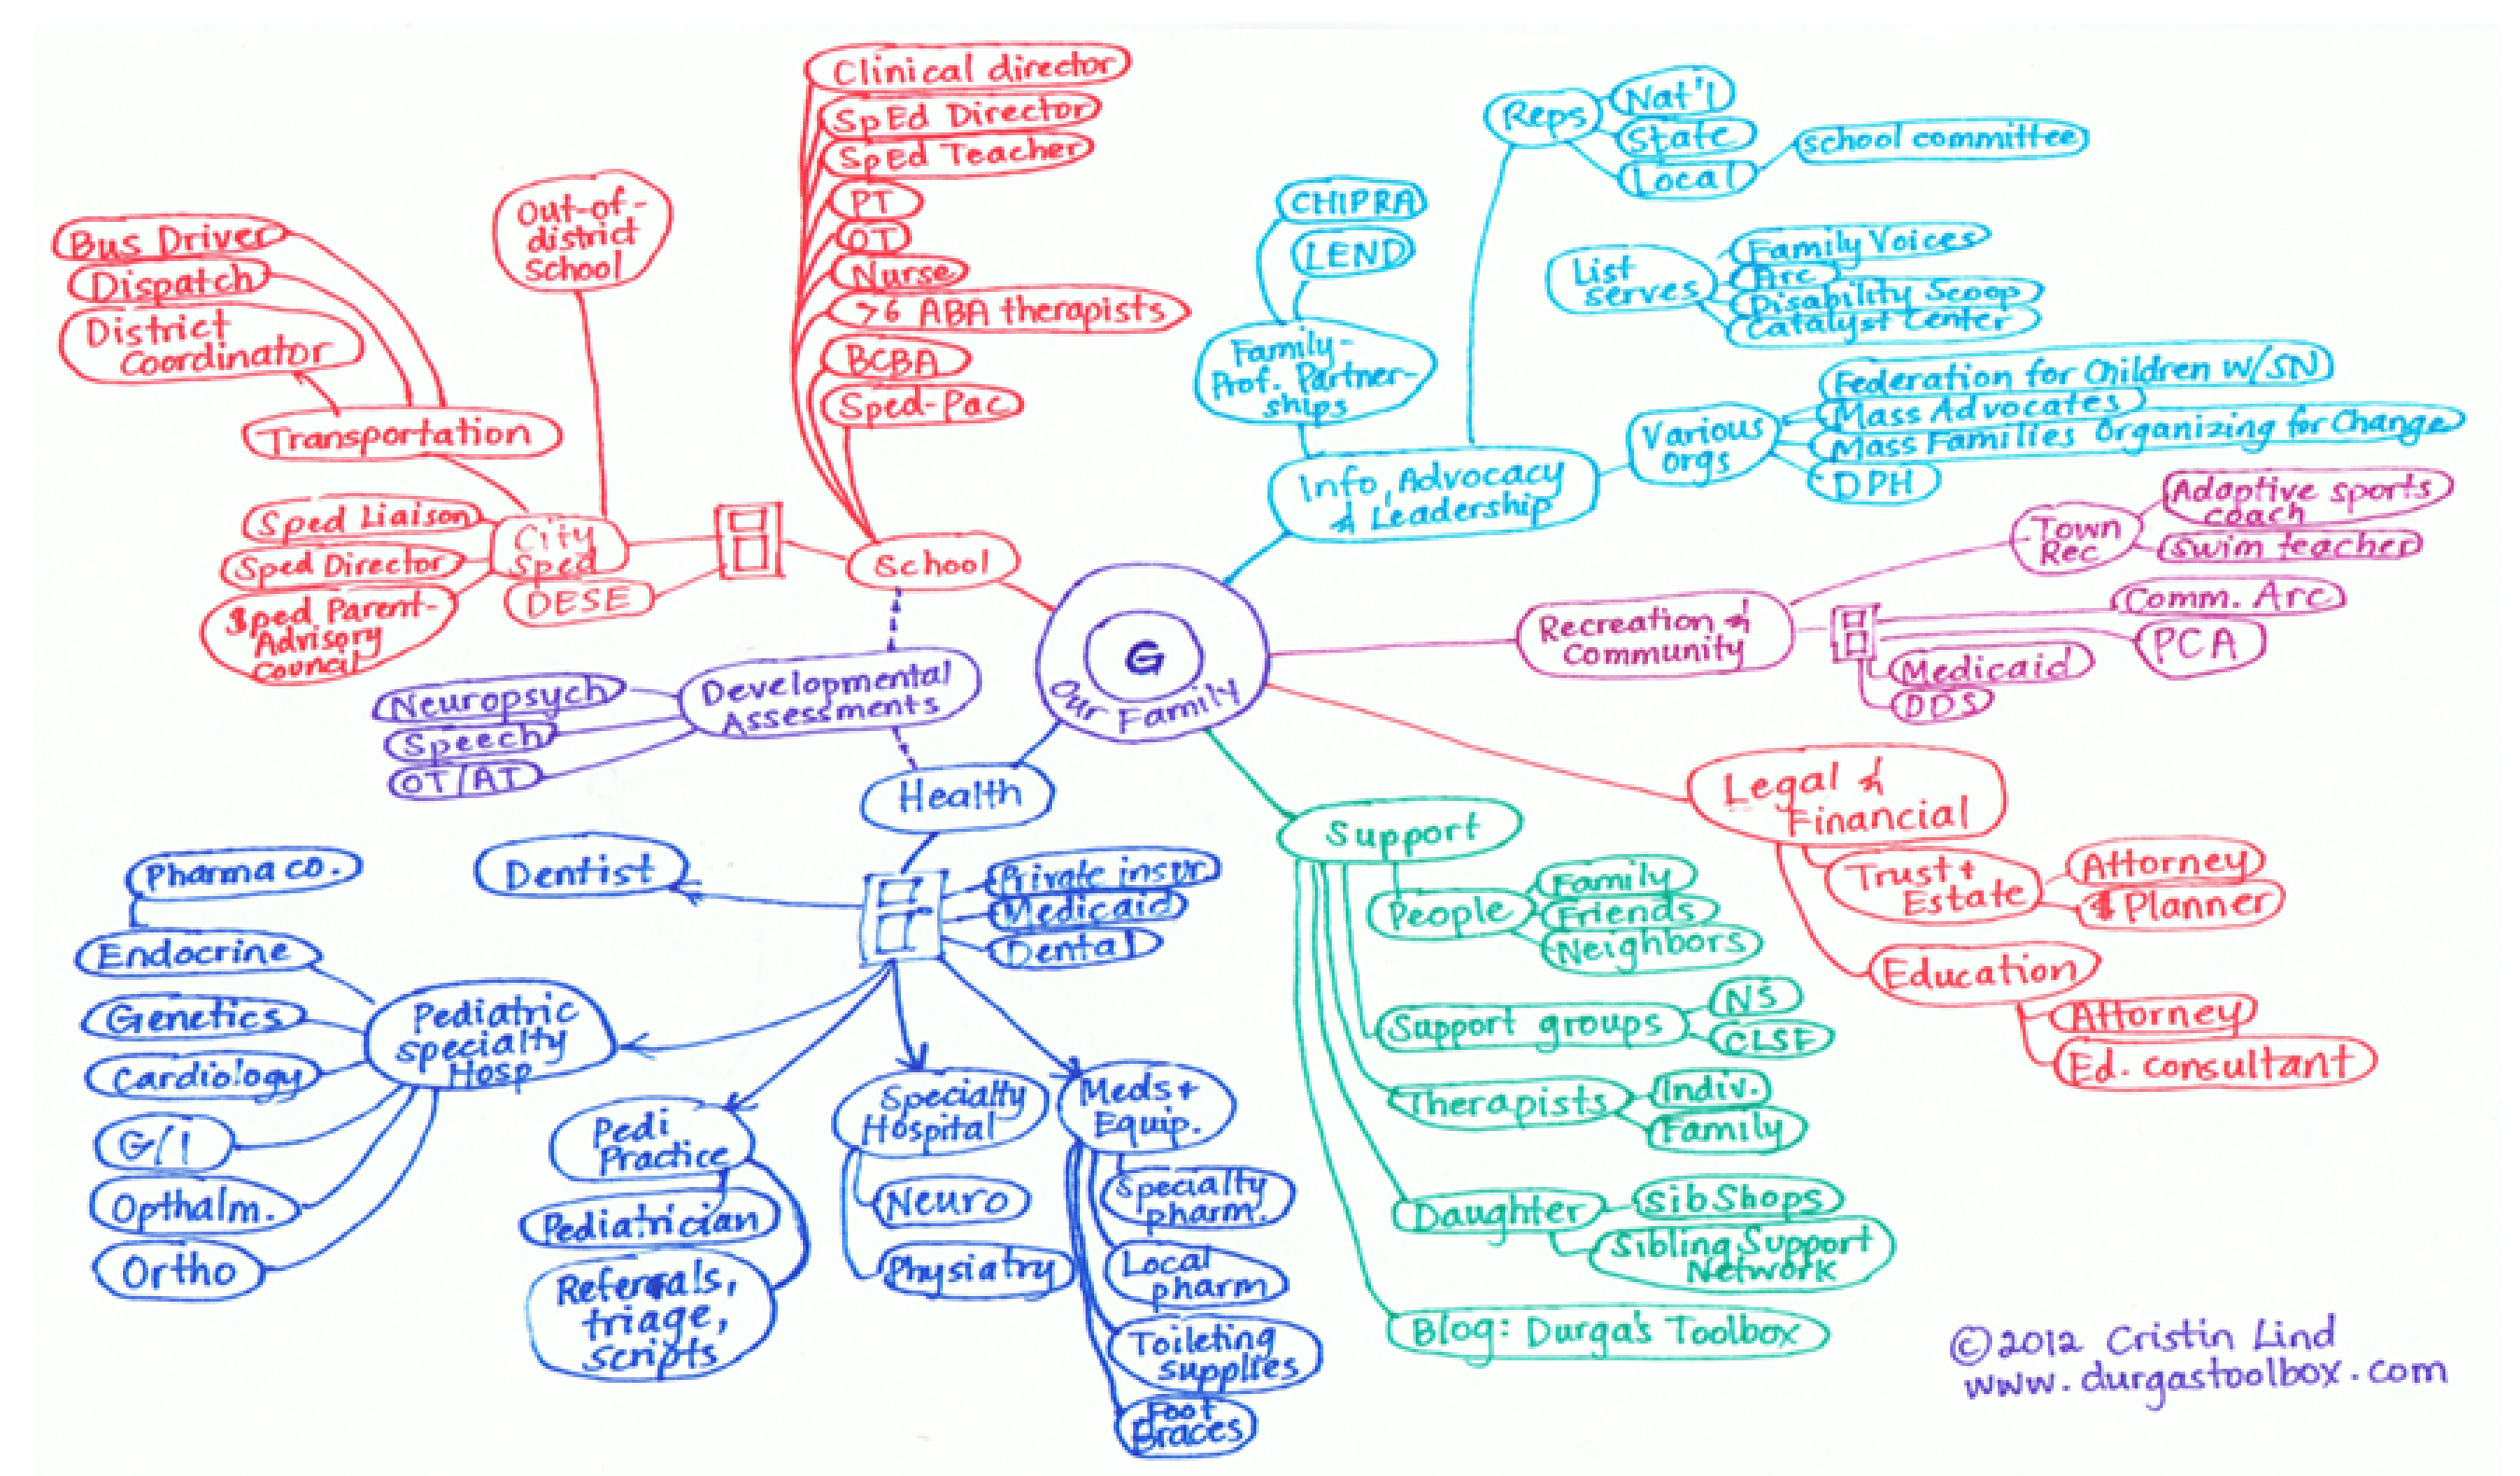 Clinical director
SpEd Director
SpEd Teacher
PT
OT
Nurse
>6 ABA therapists
BCBA
Sped-Pac
Out-of-
district
School
Bus Driver
Dispatch
District
Coordinator
Transportation
Sped Liaison
Sped Director
Sped Parent-
Advisory
Council
City
Sped
DESE
School
Reps
Nat'l
State
Local
school committee
CHIPRA
LEND
Family-
Prof. Partner-
ships
List
serves
Family Voices
Arc
Disability Scoop
Catalyst Center
Various
orgs
Federation for Children w/SN
Mass Advocates
Mass Families Organizing for Change
DPH
Info, Advocacy
& Leadership
G
Our Family
Recreation &
Community
Town
Rec
Adaptive sports
coach
swim teacher
Comm. Arc
PCA
Medicaid
DDS
Developmental
Assessments
Neuropsych
Speech
OT/AT
Health
Dentist
Private insur.
Medicaid
Dental
Pharma co.
Endocrine
Genetics
Cardiology
G/I
Opthalm.
Ortho
Pediatric
specialty
Hosp
Pedi
Practice
Pediatrician
Referrals,
triage,
scripts
Specialty
Hospital
Neuro
Physiatry
Meds +
Equip.
Specialty
pharm.
Local
pharm
Toileting
supplies
Foot
Braces
Support
People
Family
Friends
Neighbors
Support groups
NS
CLSF
Therapists
Indiv.
Family
Daughter
SibShops
Sibling Support
Network
Blog: Durga's Toolbox
Legal &
Financial
Trust +
Estate
Attorney
$ Planner
Education
Attorney
Ed. consultant
©2012 Cristin Lind
www.durgastoolbox.com